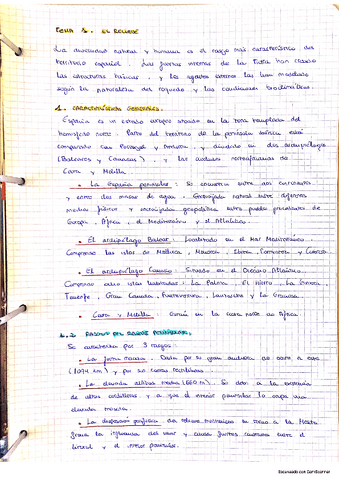 TEMA 1. EL RELIEVE
La diversidad natural y humana es el rasgo más característico del
territorio español. Las fuerzas internas de la Tierra han creado
las estructuras básicas, y los agentes externos las han modelado
según la naturaleza del roquedo y las condiciones bioclimáticas.
1. CARACTERÍSTICAS GENERALES.
España es un estado europeo situado en la zona templada del
hemisferio norte. Parte del territorio de la península ibérica está
compartido con Portugal y Andorra, y dos archipiélagos
(Baleares y Canarias), y las ciudades norteafricanas de
Ceuta y Melilla.
• La España peninsular: Se encuentra entre dos continentes
y entre dos masas de agua. Encrucijada natural entre diferentes
medios físicos y encrucijada geopolítica entre pueblos procedentes de
Europa, África, el Mediterráneo y el Atlántico.
• El archipiélago Balear: Localizado en el Mar Mediterráneo.
Comprende las islas de Mallorca, Menorca, Ibiza, Formentera y Cabrera.
• El archipiélago Canario: Situado en el Océano Atlántico.
Comprende islas habitadas: La Palma, El Hierro, La Gomera,
Tenerife, Gran Canaria, Fuerteventura, Lanzarote y La Graciosa.
• Ceuta y Melilla: en la costa norte de África.
1.2 RASGOS DEL RELIEVE PENINSULAR.
Se caracteriza por 3 rasgos:
• La forma maciza. Debida por su gran anchura de oeste a este
(1094 km) y por sus costas rectilíneas.
• La elevada altitud media (660 m). Se debe a la existencia
de altas cordilleras y a que el interior peninsular lo ocupa una
elevada meseta.
• La disposición periférica del relieve montañoso en torno a la Meseta
frena la influencia del mar y causa fuertes contrastes entre el
litoral y el interior peninsular.
Escaneado con CamScanner